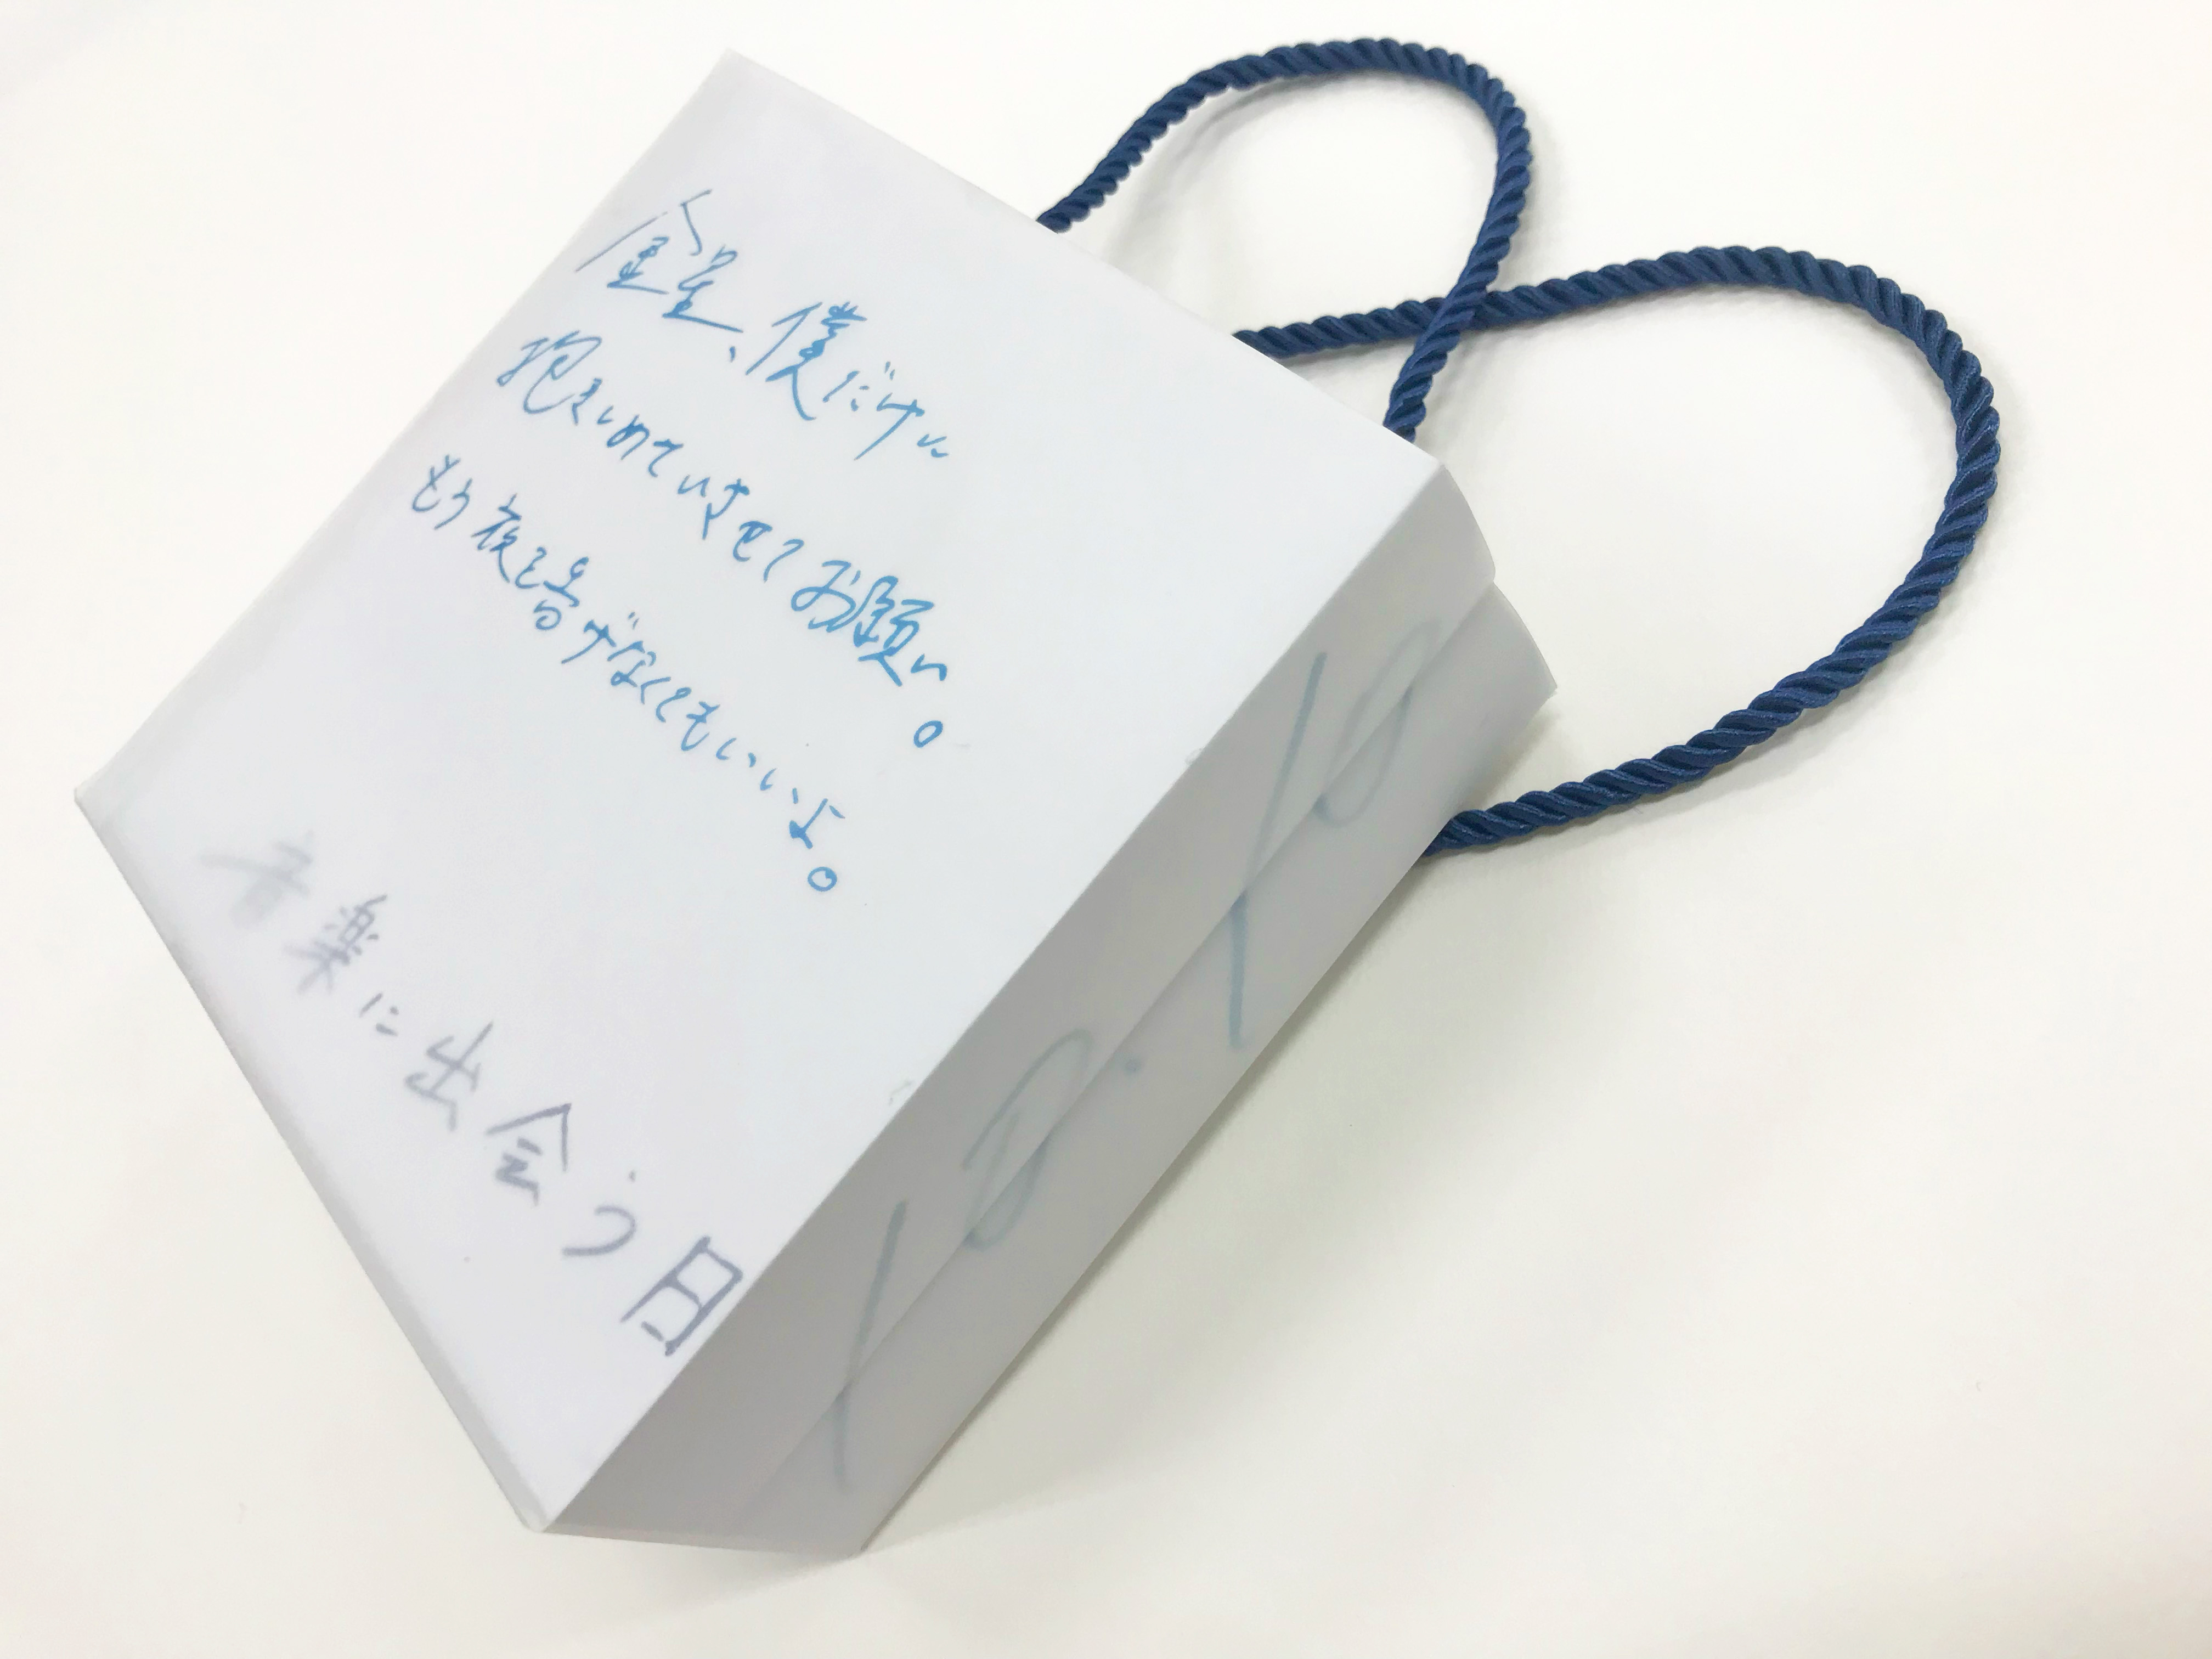 金星、僕だけに
抱きしめていさせてお願い。
もう夜を告げなくてもいいよ。
音楽に出会う日
10.10